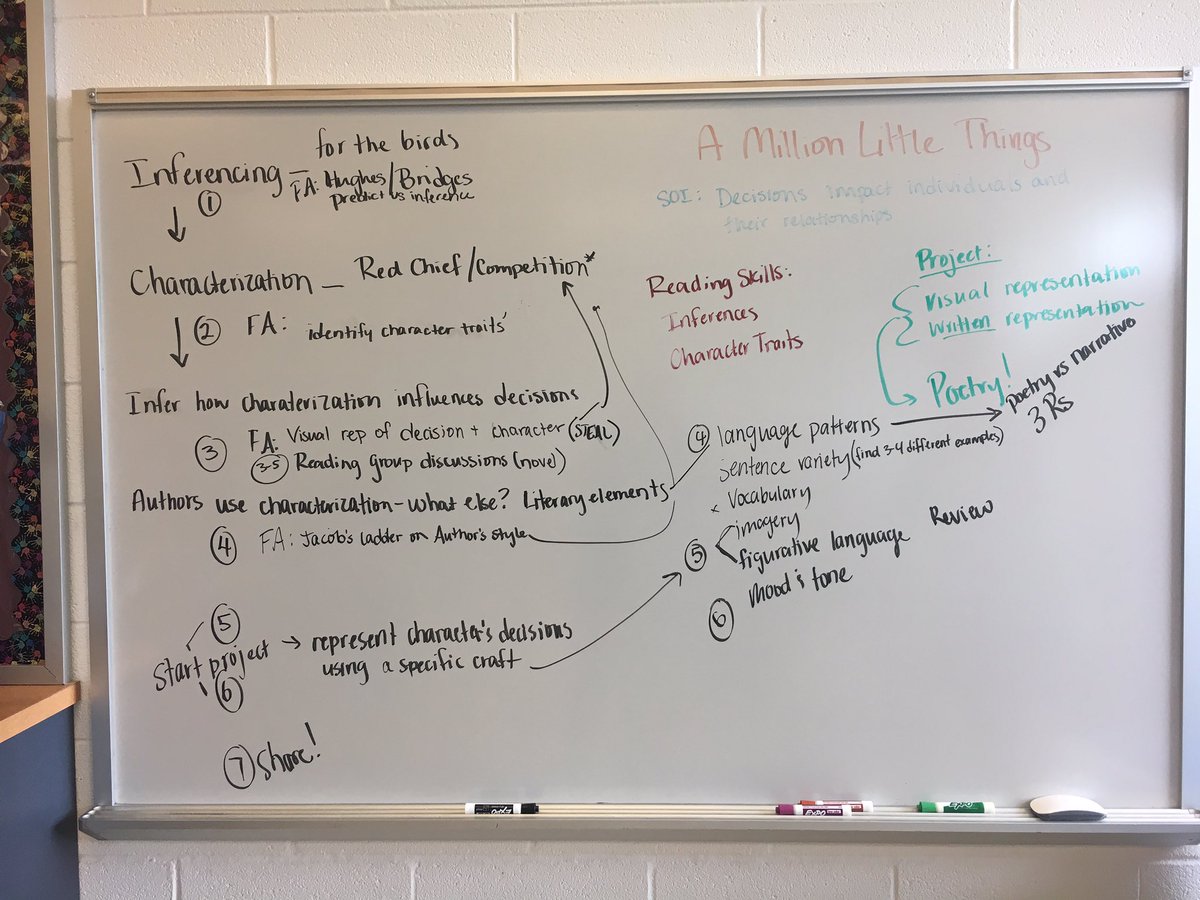 for the birds
Inferencing – FA: Hughes/Bridges
predict vs inference
①
Characterization – Red Chief/Competition*
② FA: identify character traits'
Infer how charaterization influences decisions
③ FA: Visual rep of decision + character (STEAL)
3-5 Reading group discussions (novel)
Authors use characterization – what else? Literary elements
④ FA: Jacob's ladder on Author's style
⑤
Start project → represent character's decisions
using a specific craft
⑥
⑦ Share!
A Million Little Things
SOI: Decisions impact individuals and
their relationships
Reading Skills:
Inferences
Character Traits
Project:
Visual representation
Written representation
Poetry!
④ language patterns → poetry vs narrative
3 Rs
sentence variety (find 3-4 different examples)
x Vocabulary
⑤ imagery
figurative language Review
⑥ Mood & tone
EXPO
EXPO
EXPO